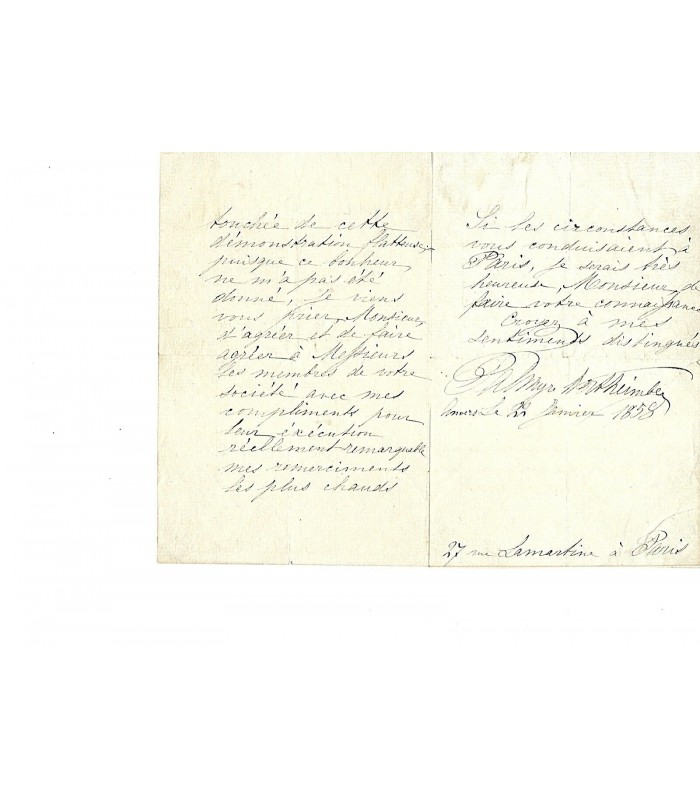 touchée de cette
démonstration flatteuse,
puisque ce bonheur
ne m'a pas été
donné, je viens
vous prier, Monsieur,
d'agréer et de faire
agréer à Messieurs
les membres de votre
société avec mes
compliments pour
leur exécution
réellement remarquable
mes remerciments
les plus chauds
Si les circonstances
vous conduisaient à
Paris, je serais très
heureuse, Monsieur, de
faire votre connaissance
Croyez à mes
sentiments distingués
Palmyre Wertheimber
Anvers le 22 Janvier 1858
27 rue Lamartine à Paris